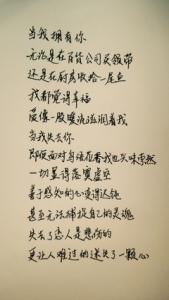 当我拥有你
无论是在百货公司买领带
还是在厨房收拾一尾鱼
我都觉得幸福
爱像一股暖流滋润着我
当我失去你
即使面对乌后在看我也只味索然
一切显得落寞虚空
善于感知的心变得迟钝
甚至无法捕捉自己的灵魂
失去了恋人是悲伤的
更让人难过的是迷失了一颗心